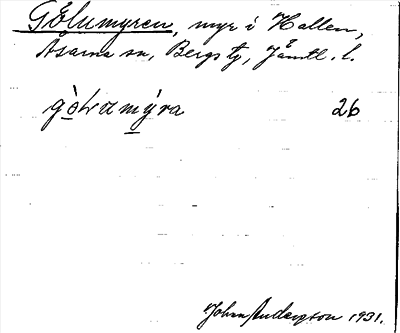 Gölumyren, myr i Hallen,
Åsarna sn, Bergs tg, Jämtl. l.
gòłɑmýra 26
Johan Anderzson 1931.